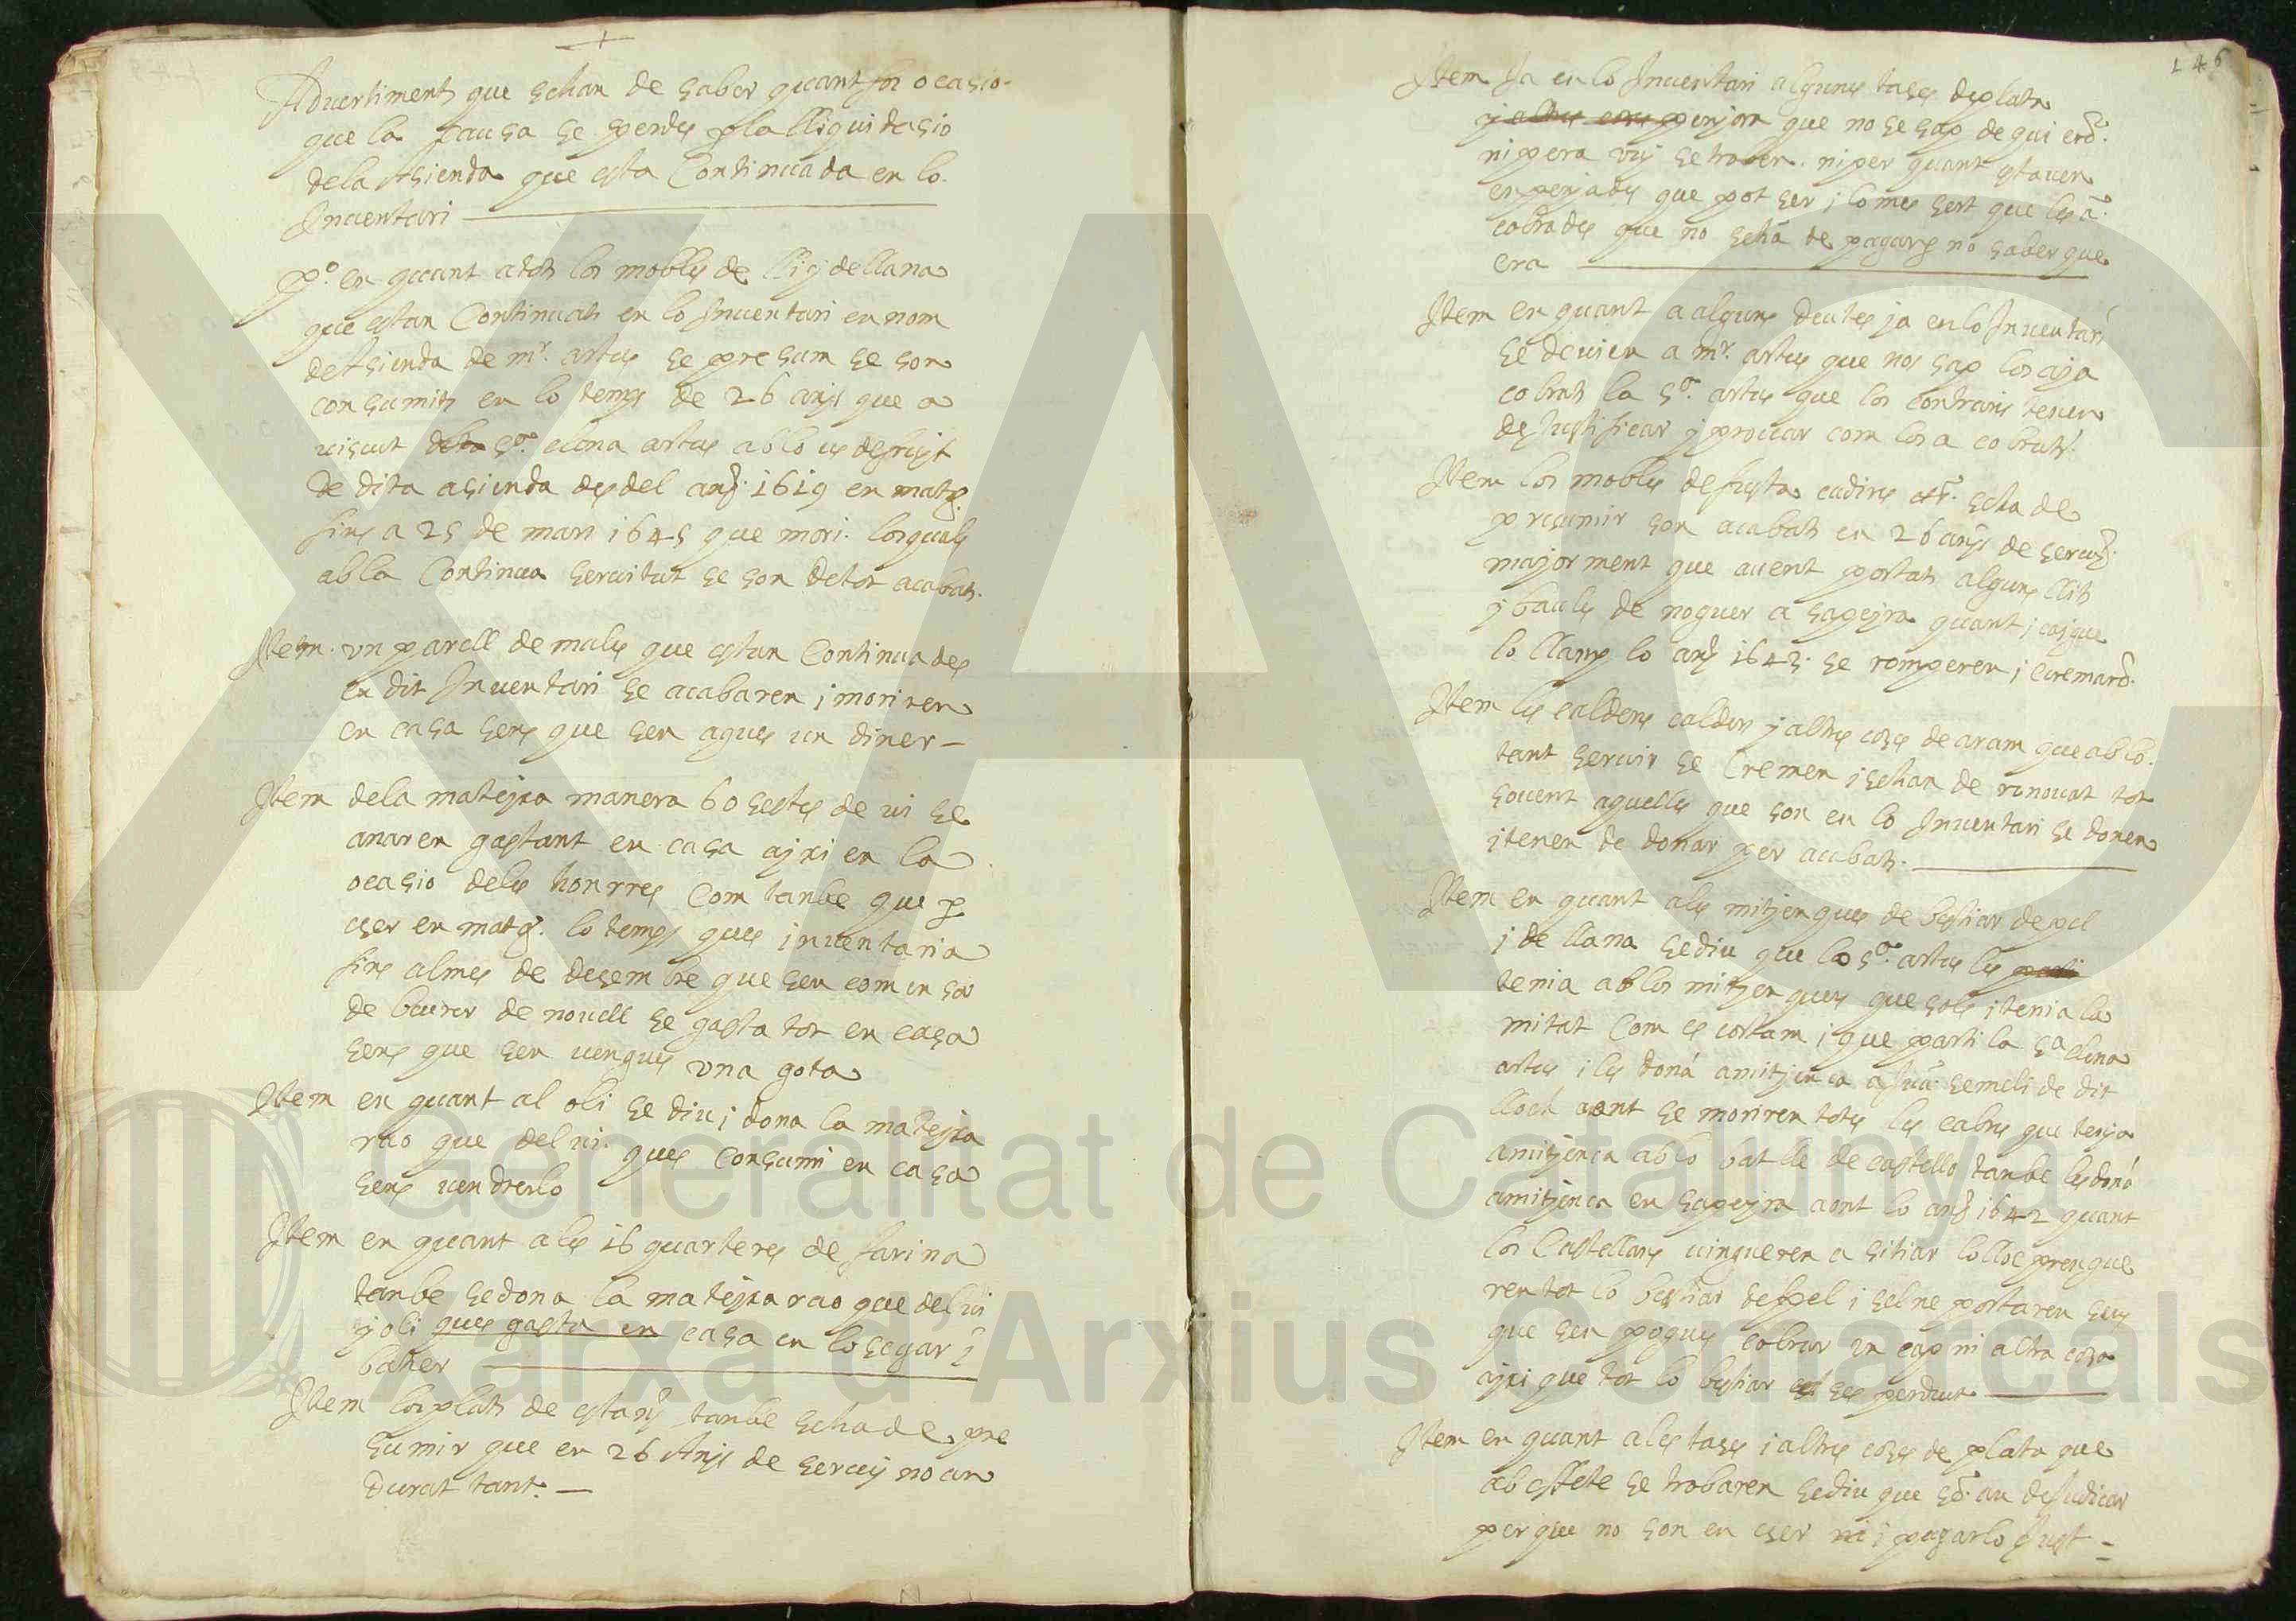 +
Advertiments que sehan de saber quant fos ocasio-
que la causa se perdes p la lliquidasio
dela Asienda que esta Continuada en lo
Inuentari
Pº. en quant atots los mobbles de lli y dellana
que estan Continuats en lo Inuentari en nom
de Asienda de mr. artus se presum se son
consumits en lo temps de 26 anys que a
uiscut la sª. elena artus ab lo us de fruyt
de dita asienda des del any 1619 en mats
fins a 25 de mars 1645 que mori. los quals
ab la Continua seruitut se son detot acabats.
Item. un parell de mules que estan Continuades
en dit Inuentari se acabaren i moriren
en casa sens que sen agues un diner –
Item dela mateyxa manera 60 sestes de ui se
anaren gastant en casa ayxi en la
ocasio deles honrres Com tanbe que p
eser en lo temps ques inuentaria
fins almes de desembre que sen comensa
de beurer de nouell se gasta tot en casa
sens que sen uengues una gota
Item en quant al oli se diu i dona la mateyxa
rao que del ui. ques consumi en casa
sens uendrerlo
Item en quant ales 16 quarteres de farina
tanbe sedona la mateyxa rao que del ui
y oli ques gasta en casa en lo segar i
batrer
Item los plats de estany tanbe seha de pre
sumir que en 26 Anys de seruey no an
durat tant. –
146
Item Ja en lo Inuentari algunes tases de plata
y altres coses penyora que no se sap de qui erã.
ni pera uuy se troben. ni per quant estauen
enpenyades que pot ser i lo mes sert que les ã.
cobrades que no sehã de pagar p no saber que
era
Item en quant a alguns deutes ja en lo Inuentari
se deuien a mr. artus que nos sap los aja
cobrats la sª. artus que los contraris tenen
de Justificar y prouar com los a cobrats.
Item los mobles de fusta cadires etª. seha de
presumir son acabats en 26 anys de seruey.
majorment que auent portats alguns llits
y bauls de noguer a sapeyra quant i caygue
lo llamp lo any 1643. se romperen i cremarõ.
Item les calderes calders y altres coses de aram que ab lo.
tant seruir se Cremen i sehan de renouat tot
souent aquelles que son en lo Inuentari se donen
i tenen de donar per acabats.
Item en quant ales mitjenques de bestiar de pel
i de llana sediu que lo sor. artus les
tenia ab los mitjenques que sols i tenia la
mitat Com es costum i que parti la sa elena
artus i les donà amitjenca a Juã. semeli de dit
lloch aont se moriren totes les cabres que tenia
amitjenca ab lo batlle de castello tanbe les donà
amitjenca en sapeyra aont lo any 1642 quant
los Castellans uingueren a sitiar lo lloc prengue
ren tot lo bestiar de pel i sel ne portaren sens
que sen pogues cobrar un cap ni altra cosa
ayxi que tot lo bestiar ses perdut
Item en quant ales tases i altres coses de plata que
ab effete se trobaren sediu que an de Judicar
per que no son en eser ni i pagarlo Just –
XAC
Generalitat de Catalunya
Xarxa d'Arxius Comarcals